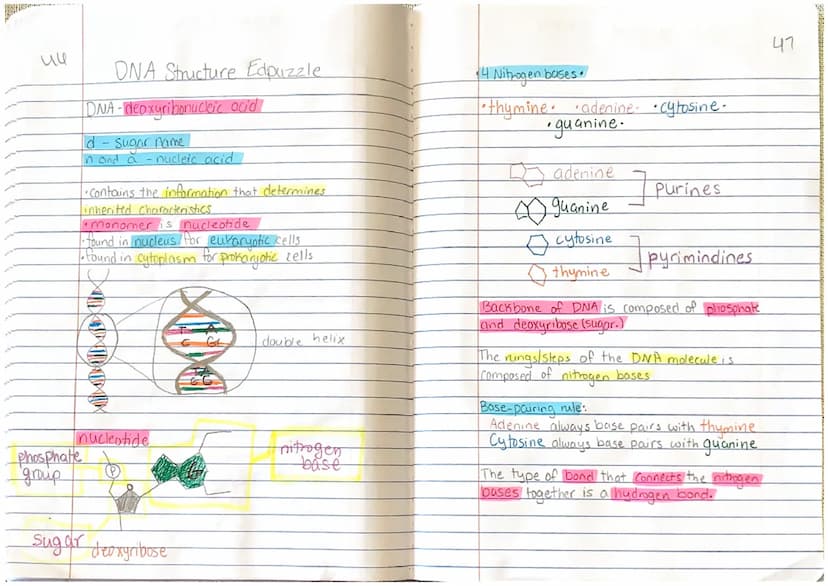 46
DNA Structure Edpuzzle
DNA - deoxyribonucleic acid
d - sugar name
n and a - nucleic acid
•contains the information that determines
inherited characteristics
•monomer is nucleotide
•found in nucleus for eukaryotic cells
•found in cytoplasm for prokaryotic cells
T A
C G
double helix
T A
G C
nucleotide
phosphate
group
P
G
nitrogen
base
sugar deoxyribose
47
•4 Nitrogen bases•
•thymine• •adenine• •cytosine•
•guanine•
adenine
guanine
purines
cytosine
thymine
pyrimindines
Backbone of DNA is composed of phosphate
and deoxyribose (sugar.)
The rungs/steps of the DNA molecule is
composed of nitrogen bases
Base-pairing rule:
Adenine always base pairs with thymine
Cytosine always base pairs with guanine
The type of bond that connects the nitrogen
bases together is a hydrogen bond.